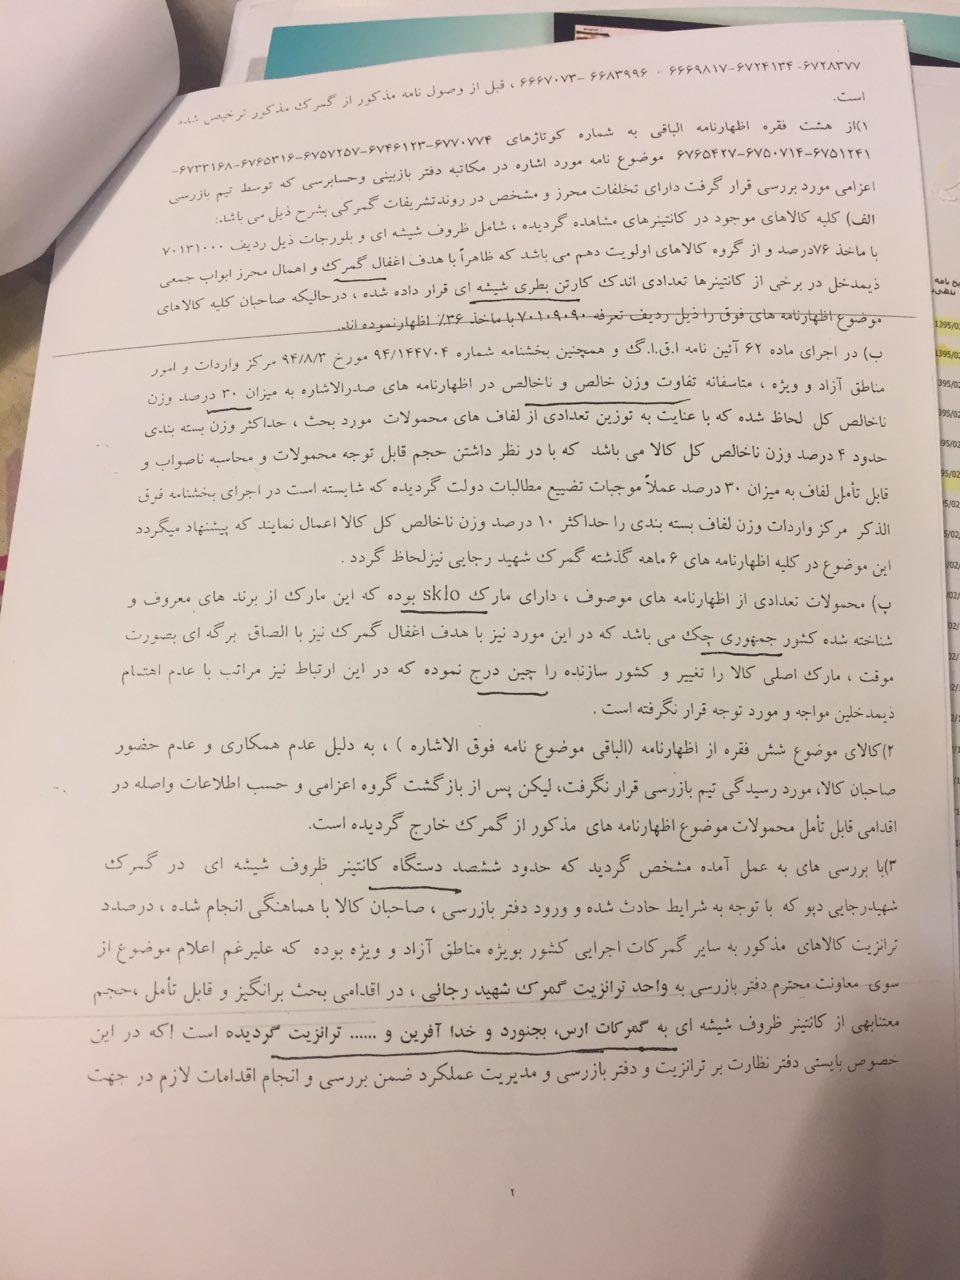 ۶۷۲۸۳۷۷- ۶۷۲۴۱۳۴-۶۶۶۹۸۱۷ - ۶۶۸۳۹۹۶ -۶۶۶۷۰۷۳ ، قبل از وصول نامه مذکور از گمرک مذکور ترخیص شده
است.
۱)از هشت فقره اظهارنامه الباقی به شماره کوتاژهای ۶۷۷۰۷۷۴-۶۷۴۶۱۲۳-۶۷۵۷۲۵۷-۶۷۶۵۳۱۶-۶۷۳۳۱۶۸-
۶۷۵۱۲۴۱-۶۷۵۰۷۱۴-۶۷۶۵۴۲۷ موضوع نامه مورد اشاره در مکاتبه دفتر بازبینی وحسابرسی که توسط تیم بازرسی
اعزامی مورد بررسی قرار گرفت دارای تخلفات محرز و مشخص در روندتشریفات گمرکی بشرح ذیل می باشد:
الف) کلیه کالاهای موجود در کانتینرهای مشاهده گردیده ، شامل ظروف شیشه ای و بلورجات ذیل ردیف ۷۰۱۳۱۰۰۰
با ماخذ ۷۶درصد و از گروه کالاهای اولویت دهم می باشد که ظاهراً با هدف اغفال گمرک و اهمال محرز ابواب جمعی
ذیمدخل در برخی از کانتینرها تعدادی اندک کارتن بطری شیشه ای قرار داده شده ، درحالیکه صاحبان کلیه کالاهای
موضوع اظهارنامه های فوق را ذیل ردیف تعرفه ۷۰۱۰۹۰۹۰ با ماخذ ۳۶٪ اظهارنموده اند.
ب) در اجرای ماده ۶۲ آئین نامه ا.ق.ا.گ و همچنین بخشنامه شماره ۹۴/۱۴۴۷۰۴ مورخ ۹۴/۸/۳ مرکز واردات و امور
مناطق آزاد و ویژه ، متاسفانه تفاوت وزن خالص و ناخالص در اظهارنامه های صدرالاشاره به میزان ۳۰ درصد وزن
ناخالص کل لحاظ شده که با عنایت به توزین تعدادی از لفاف های محمولات مورد بحث ، حداکثر وزن بسته بندی
حدود ۴ درصد وزن ناخالص کل کالا می باشد که با در نظر داشتن حجم قابل توجه محمولات و محاسبه ناصواب و
قابل تأمل لفاف به میزان ۳۰ درصد عملاً موجبات تضییع مطالبات دولت گردیده که شایسته است در اجرای بخشنامه فوق
الذکر مرکز واردات وزن لفاف بسته بندی را حداکثر ۱۰ درصد وزن ناخالص کل کالا اعمال نمایند که پیشنهاد میگردد
این موضوع در کلیه اظهارنامه های ۶ ماهه گذشته گمرک شهید رجایی نیزلحاظ گردد .
پ) محمولات تعدادی از اظهارنامه های موصوف ، دارای مارک sklo بوده که این مارک از برند های معروف و
شناخته شده کشور جمهوری چک می باشد که در این مورد نیز با هدف اغفال گمرک نیز با الصاق برگه ای بصورت
موقت ، مارک اصلی کالا را تغییر و کشور سازنده را چین درج نموده که در این ارتباط نیز مراتب با عدم اهتمام
ذیمدخلین مواجه و مورد توجه قرار نگرفته است .
۲)کالای موضوع شش فقره از اظهارنامه (الباقی موضوع نامه فوق الاشاره ) ، به دلیل عدم همکاری و عدم حضور
صاحبان کالا، مورد رسیدگی تیم بازرسی قرار نگرفت، لیکن پس از بازگشت گروه اعزامی و حسب اطلاعات واصله در
اقدامی قابل تأمل محمولات موضوع اظهارنامه های مذکور از گمرک خارج گردیده است.
۳)با بررسی های به عمل آمده مشخص گردید که حدود ششصد دستگاه کانتینر ظروف شیشه ای در گمرک
شهیدرجایی دپو که با توجه به شرایط حادث شده و ورود دفتر بازرسی ، صاحبان کالا با هماهنگی انجام شده ، درصدد
ترانزیت کالاهای مذکور به سایر گمرکات اجرایی کشور بویژه مناطق آزاد و ویژه بوده که علیرغم اعلام موضوع از
سوی معاونت محترم دفتر بازرسی به واحد ترانزیت گمرک شهید رجائی ، در اقدامی بحث برانگیز و قابل تأمل ،حجم
معتنابهی از کانتینر ظروف شیشه ای به گمرکات ارس، بجنورد و خدا آفرین و ...... ترانزیت گردیده است !که در این
خصوص بایستی دفتر نظارت بر ترانزیت و دفتر بازرسی و مدیریت عملکرد ضمن بررسی و انجام اقدامات لازم در جهت
۲